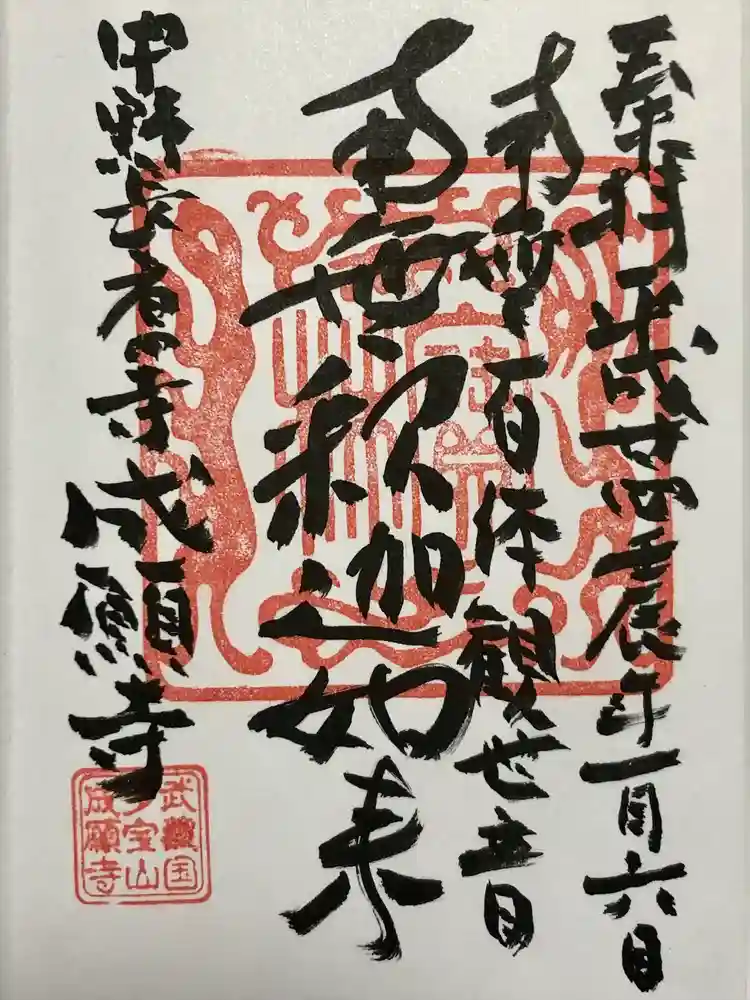 奉拝 平成廿四壬辰年一月六日
南無百体観世音
南無釈迦如来
中野長者の寺 成願寺
武蔵国
多宝山
成願寺